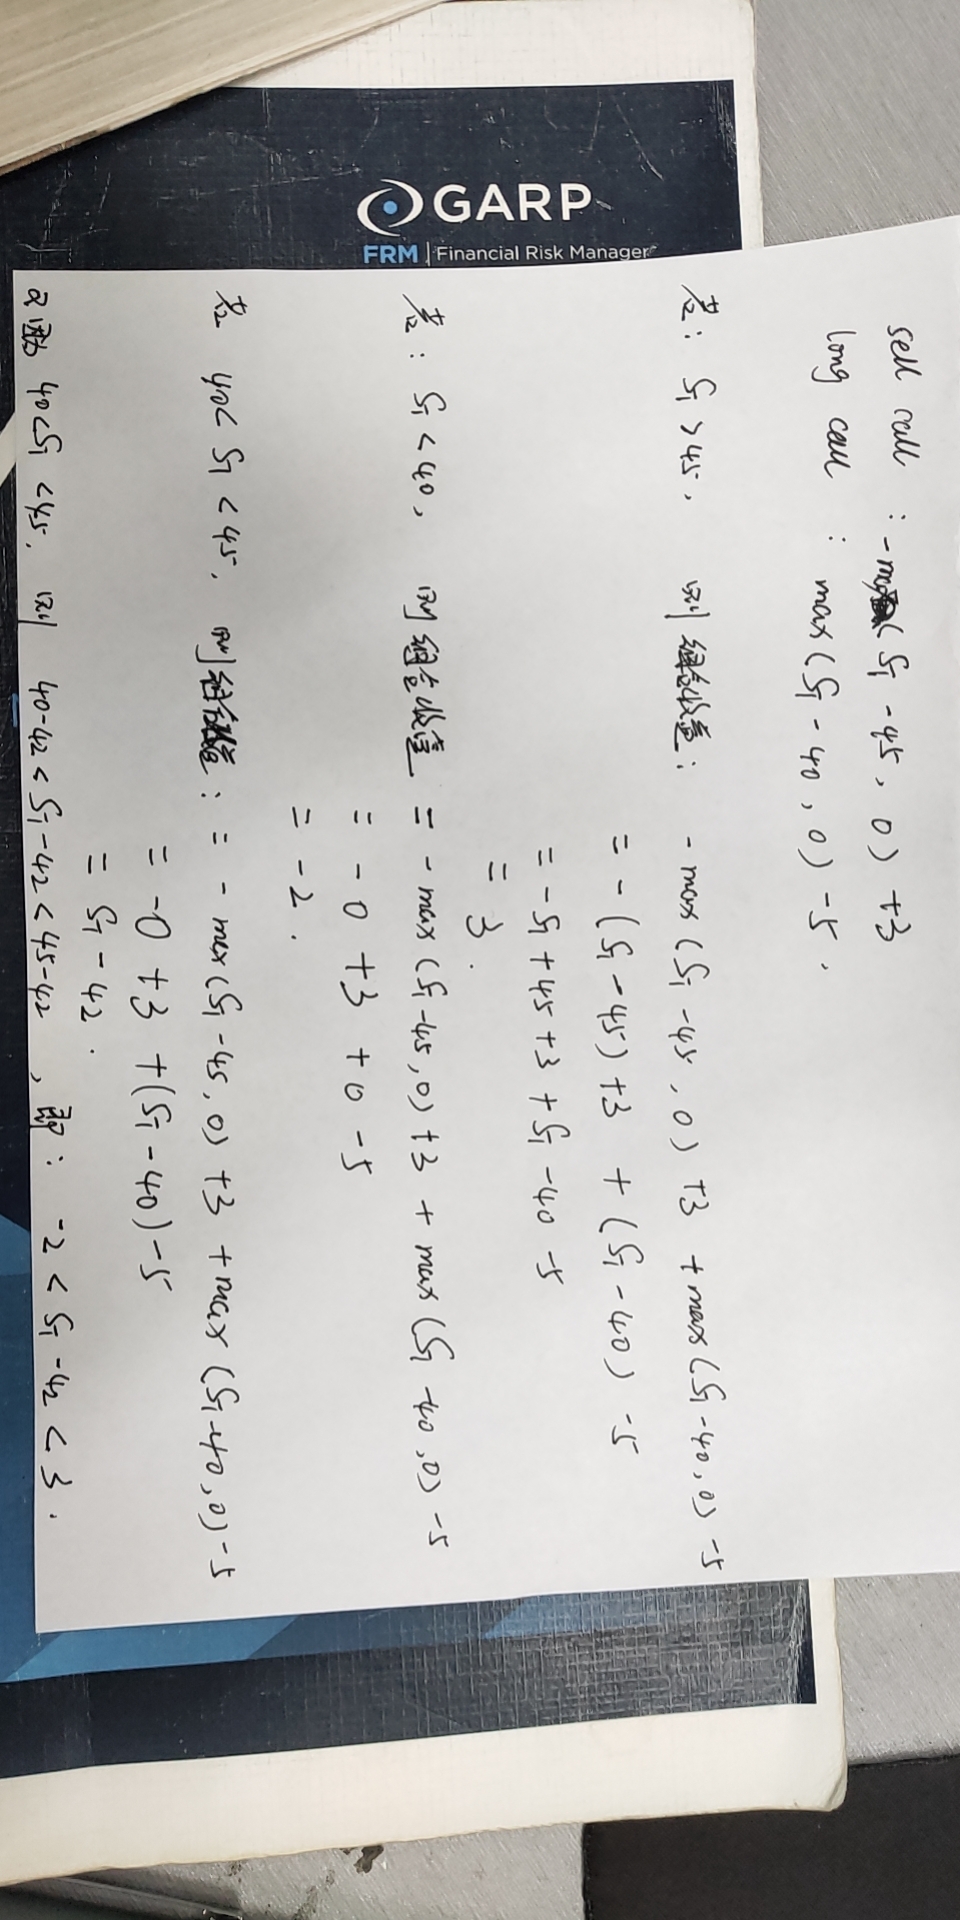 GARP
FRM | Financial Risk Manager
sell call : -max(ST -45, 0) +3
long call : max(ST -40, 0) -5.
若: ST >45, 则组合收益: -max(ST -45, 0) +3 +max(ST -40, 0) -5
= -(ST -45) +3 + (ST -40) -5
= -ST +45 +3 +ST -40 -5
= 3.
若: ST < 40, 则组合收益 = -max(ST -45, 0) +3 + max(ST -40, 0) -5
= -0 +3 +0 -5
= -2.
若 40< ST <45, 则组合收益: = -max(ST -45, 0) +3 +max(ST -40, 0) -5
= -0 +3 +(ST -40) -5
= ST -42.
又因为 40<ST <45, 则 40-42 < ST -42 < 45-42, 即: -2 < ST -42 < 3.